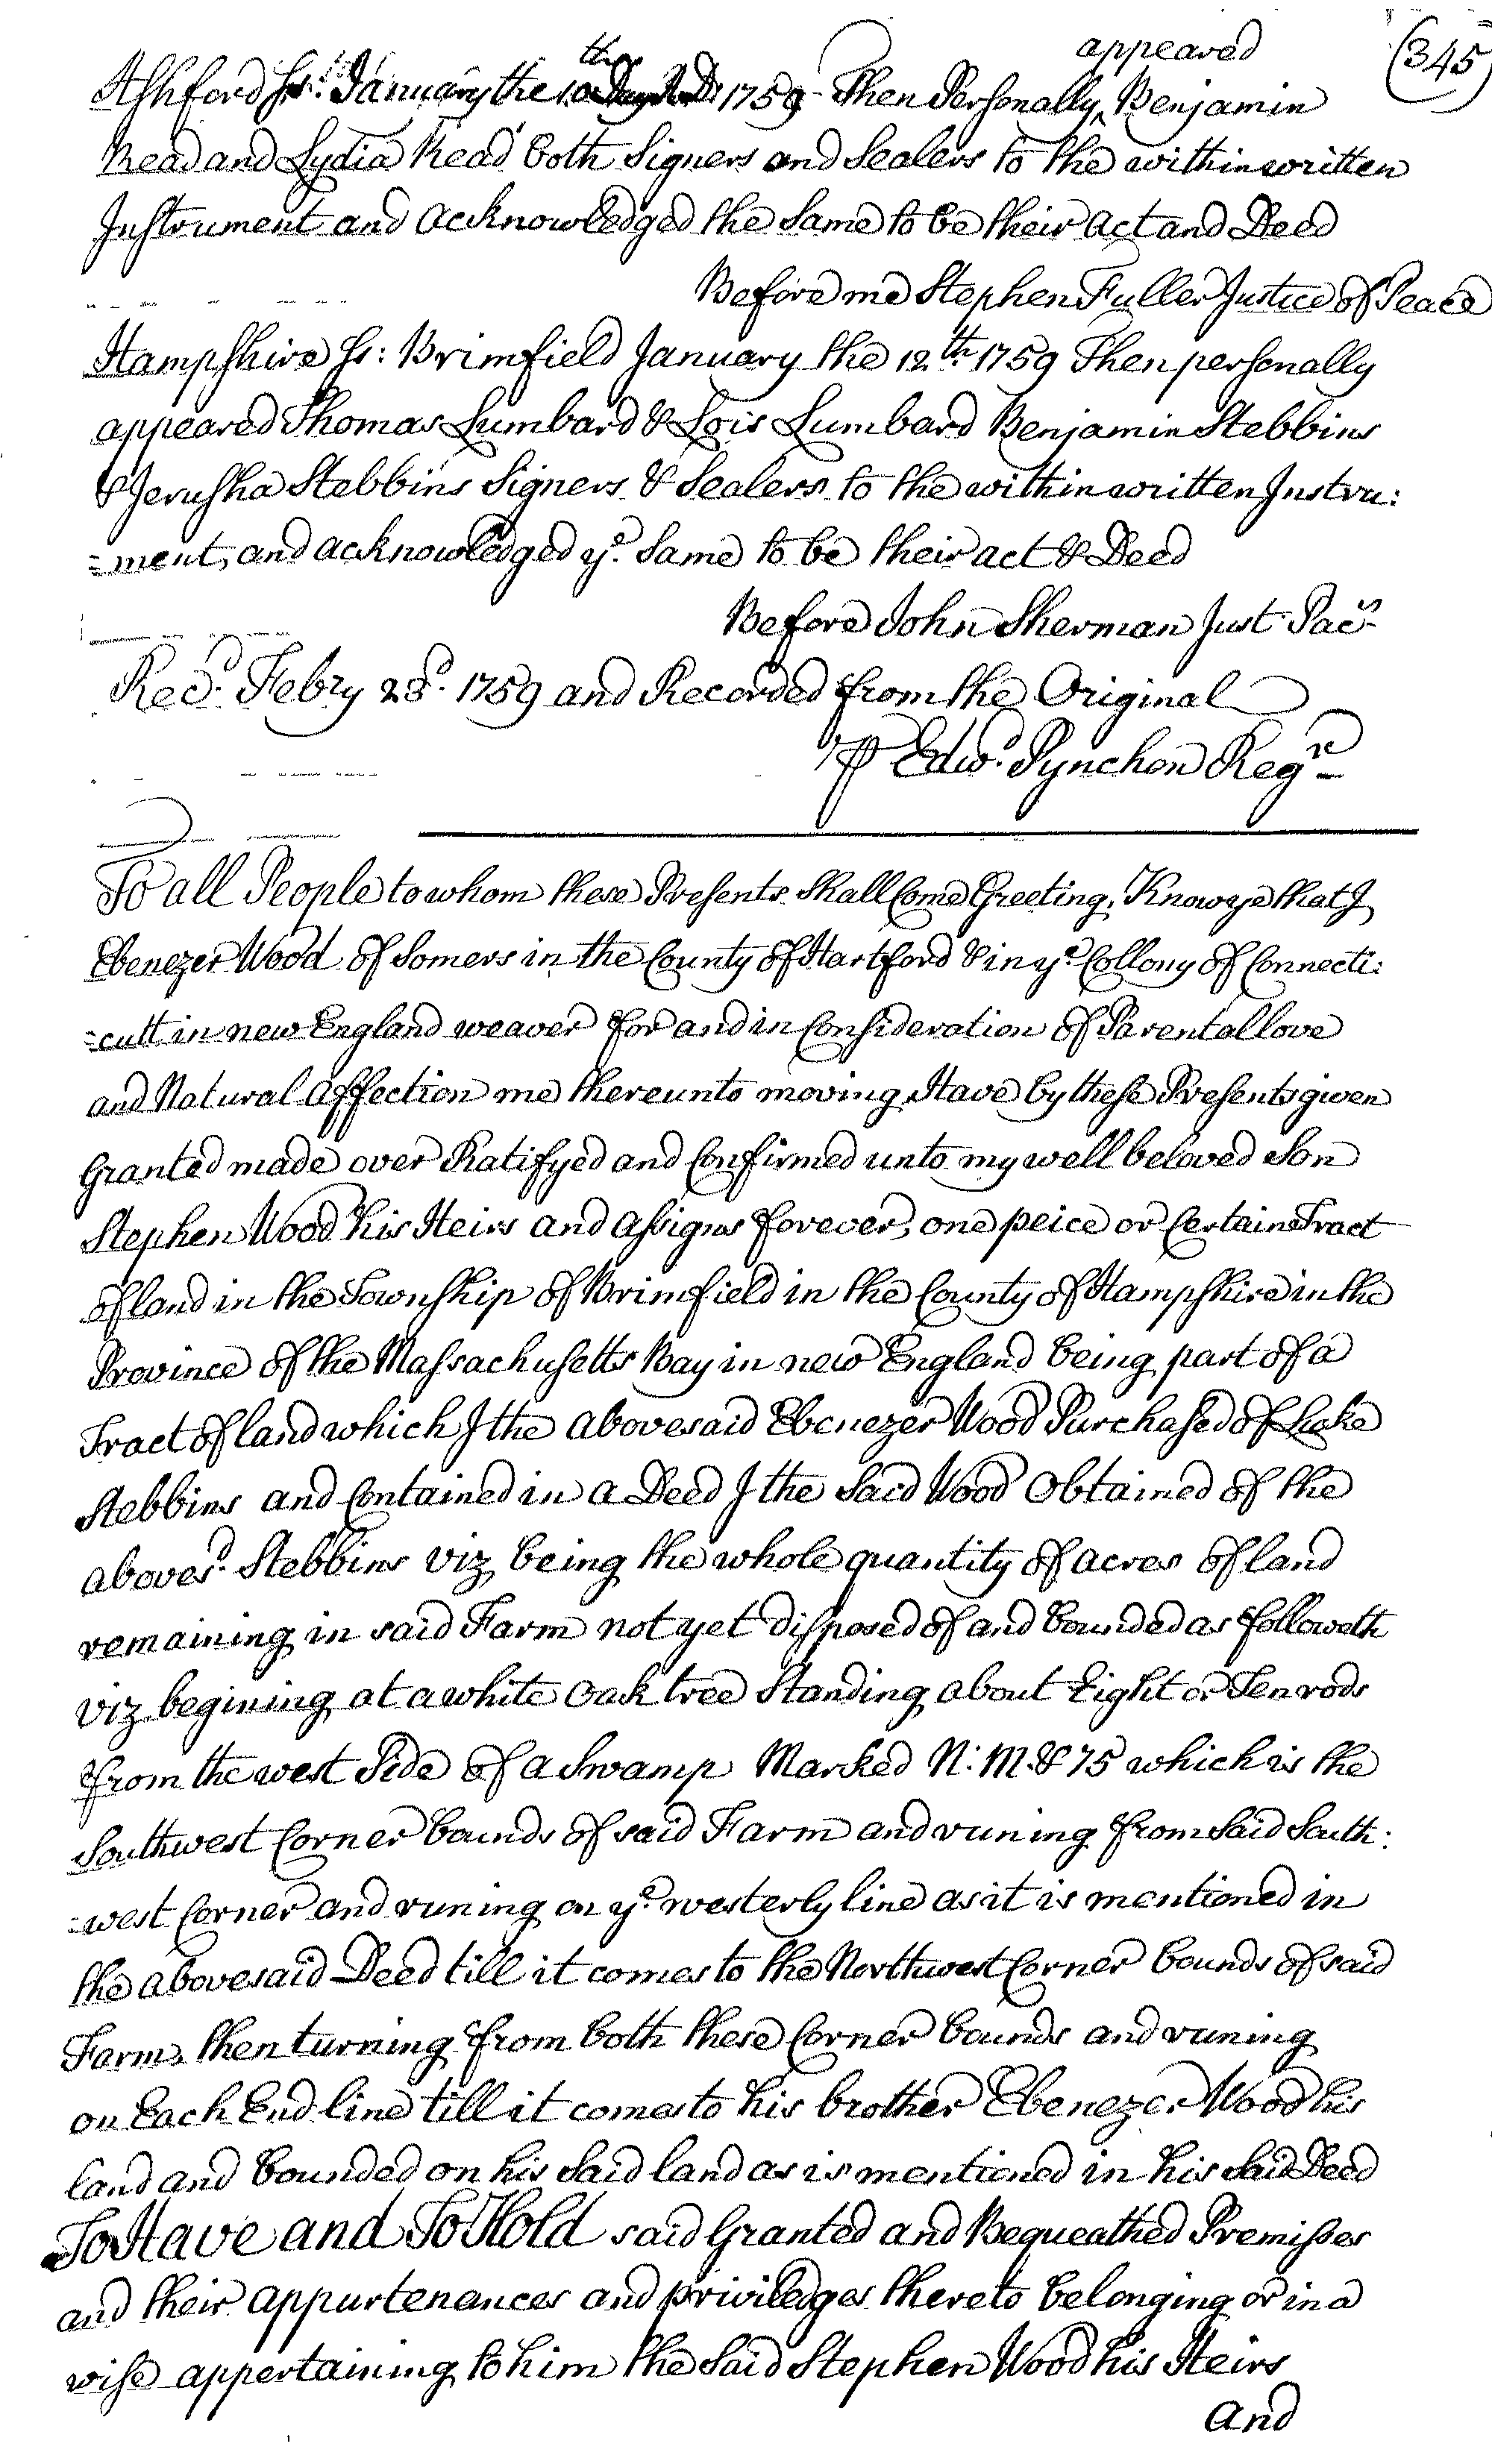 (345)
Ashford ss: January the 10th 1759 Then Personally appeared Benjamin
Read and Lydia Read both Signers and Sealers to the within written
Instrument and acknowledged the Same to be their act and Deed
Before me Stephen Fuller Justice of Peace
Hampshire ss: Brimfield January the 12th 1759 Then personally
appeared Thomas Lumbard & Lois Lumbard Benjamin Stebbins
& Jerusha Stebbins Signers & Sealers to the within written Instru:
=ment, and acknowledged ye. Same to be their act & Deed
Before John Sherman Just Pacs
Recd. Febry 28. 1759 and Recorded from the Original
P Edwd. Pynchon Regr
To all People to whom these Presents Shall Come Greeting, Know ye that I
Ebenezer Wood of Somers in the County of Hartford & in ye Collony of Connecti:
=cutt in new England weaver for and in Consideration of Parental love
and Natural affection me thereunto moving Have by these Presents given
Granted made over Ratifyed and Confirmed unto my well beloved Son
Stephen Wood his Heirs and assigns forever, one peice or Certaine Tract
of land in the Township of Brimfield in the County of Hampshire in the
Province of the Massachusetts Bay in new England being part of a
Tract of land which I the abovesaid Ebenezer Wood Purchased of Luke
Stebbins and Contained in a Deed I the Said Wood Obtained of the
abovesd. Stebbins viz, being the whole quantity of acres of land
remaining in said Farm not yet disposed of and bounded as followeth
viz begining at a white Oak tree Standing about Eight or Ten rods
from the west Side of a Swamp Marked N: M: & 75 which is the
Southwest Corner bounds of said Farm and runing from Said South:
=west Corner and runing on ye westerly line as it is mentioned in
the abovesaid Deed till it comes to the Northwest Corner bounds of said
Farm, then turning from both these Corner bounds and runing
on Each End line till it comes to his brother Ebenezer Wood his
land and bounded on his Said land as is mentioned in his Said Deed
To Have and To Hold said Granted and Bequeathed Premisses
and their appurtenances and priviledges thereto belonging or in a
wise appertaining to him the Said Stephen Wood his Heirs
And